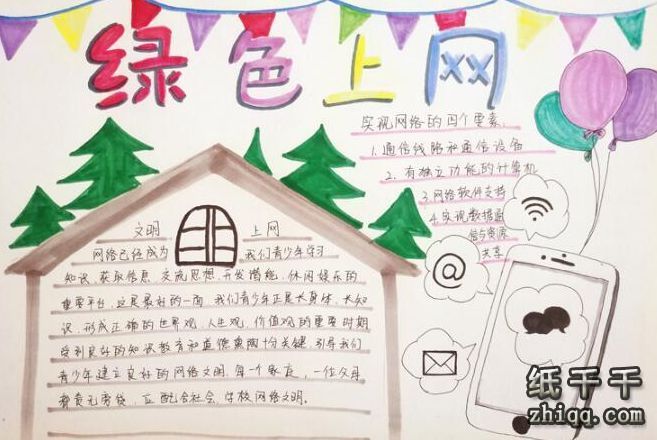 绿色上网
实现网络的四个要素
1.通信线路和通信设备
2.有独立功能的计算机
3.网络软件支持
4.实现数据通
信与资源
共享
@
文明 上网
网络已经成为 我们青少年学习
知识、获取信息、交流思想、开发潜能、休闲娱乐的
重要平台,这是最好的一面,我们青少年正是长身体、长知
识,形成正确的世界观、人生观、价值观的重要时期
受到良好的知识教育和道德熏陶十分关键,引导我们
青少年建立良好的网络文明,每一个家庭,一位父母
都责无旁贷,应配合社会、学校网络文明。
纸千千
zhiqq.com